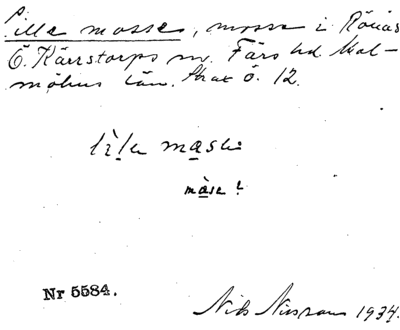 Lilla mosse, mosse i Rönås
Ö. Kärrstorps sn. Färs hd Mal-
möhus län. Strax ö. 12.
mase !
Nr 5584.
Nils Nilsson 1934.